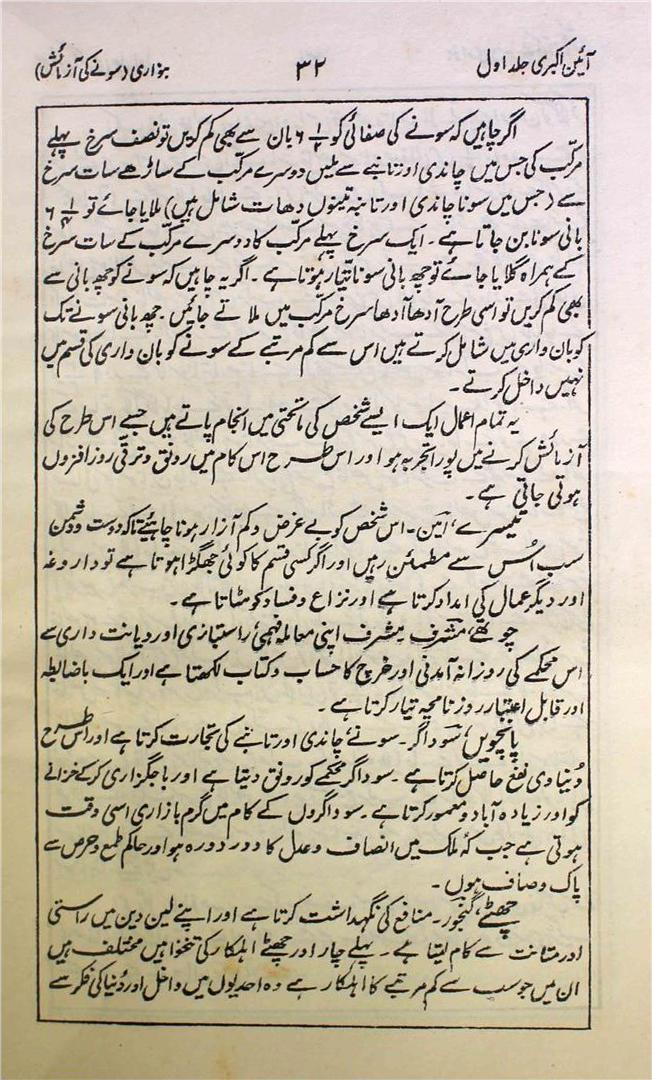 آئین اکبری جلد اول ۳۲ بنواری (سونے کی آزمائش)
اگر چاہیں کہ سونے کی صفائی کو ۶ ۱/۴ بان سے بھی کم کریں تو نصف سرخ پہلے
مرکب کی جس میں چاندی اور تانبے سے ملیں دوسرے مرکب کے ساڑھے سات سرخ
سے (جس میں سونا چاندی اور تانبہ تینوں دھات شامل ہیں) ملایا جائے تو ۶ ۱/۴
بانی سونا بن جاتا ہے۔ ایک سرخ پہلے مرکب کا دوسرے مرکب کے سات سرخ
کے ہمراہ گلایا جائے تو چھ بانی سونا تیار ہوتا ہے۔ اگر یہ چاہیں کہ سونے کو چھ بانی سے
بھی کم کریں تو اسی طرح آدھا آدھا سرخ مرکب میں ملاتے جائیں۔ چھ بانی سونے تک
کو بان واری میں شامل کرتے ہیں اس سے کم مرتبے کے سونے کو بان واری کی قسم میں
نہیں داخل کرتے۔
یہ تمام اعمال ایک ایسے شخص کی ماتحتی میں انجام پاتے ہیں جسے اس طرح کی
آزمائش کرنے میں پورا تجربہ ہو اور اس طرح اس کام میں رونق و ترقی روز افزوں
ہوتی جاتی ہے۔
تیسرے، امین۔ اس شخص کو بے غرض و کم آزار ہونا چاہیئے تاکہ دوست و دشمن
سب اُس سے مطمئن رہیں اور اگر کسی قسم کا کوئی جھگڑا ہوتا ہے تو داروغہ
اور دیگر عمال کی امداد کرتا ہے اور نزاع و فساد کو مٹاتا ہے۔
چوتھے، مشرف۔ مشرف اپنی معاملہ فہمی راستبازی اور دیانت داری سے
اس محکمے کی روزانہ آمدنی اور خرچ کا حساب و کتاب لکھتا ہے اور ایک باضابطہ
اور قابل اعتبار روزنامچہ تیار کرتا ہے۔
پانچویں، سوداگر۔ سونے، چاندی اور تانبے کی تجارت کرتا ہے اور اس طرح
دُنیاوی نفع حاصل کرتا ہے۔ سوداگر محکمے کو رونق دیتا ہے اور باجگزاری کرکے خزانے
کو اور زیادہ آباد و معمور کرتا ہے۔ سوداگروں کے کام میں گرم بازاری اسی وقت
ہوتی ہے جب کہ ملک میں انصاف و عدل کا دور دورہ ہو اور حاکم طمع و حرص سے
پاک و صاف ہوں۔
چھٹے، گنجور۔ منافع کی نگہداشت کرتا ہے اور اپنے لین دین میں راستی
اور متانت سے کام لیتا ہے۔ پہلے چار اور چھٹے اہلکار کی تنخواہیں مختلف ہیں
ان میں جو سب سے کم مرتبے کا اہلکار ہے وہ احدیوں میں داخل اور دُنیا کی فکر سے